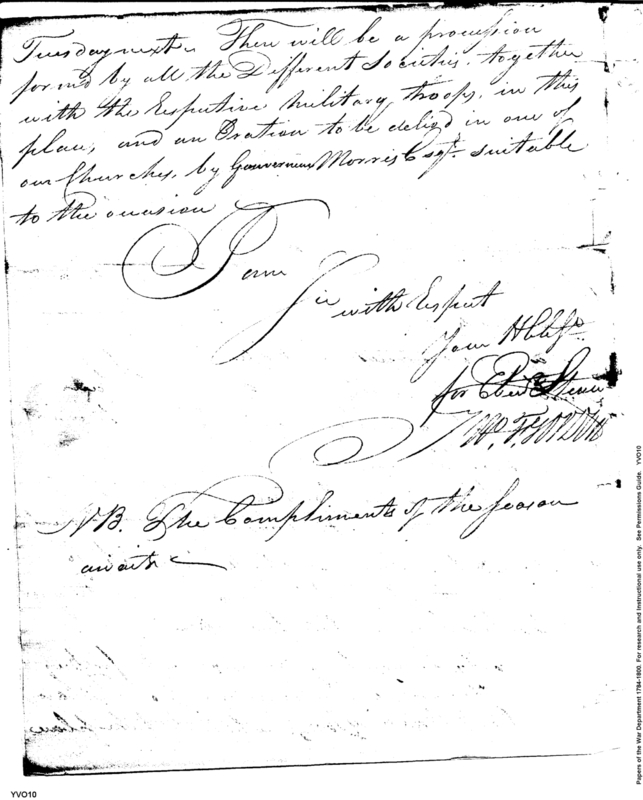 Tuesday next. There will be a procession
formed by all the Different Societies, together
with the Respective military troops, in this
place, and an Oration to be delivd in one of
our Churches, by Gouverneur Morris Esqr. suitable
to the occasion
I am
Sir
with Respect
Your Hble St
for Eben Stevens
N.B. The Compliments of the Season
await
Papers of the War Department 1784-1800. For research and instructional use only. See Permissions Guide. YVO10
YVO10